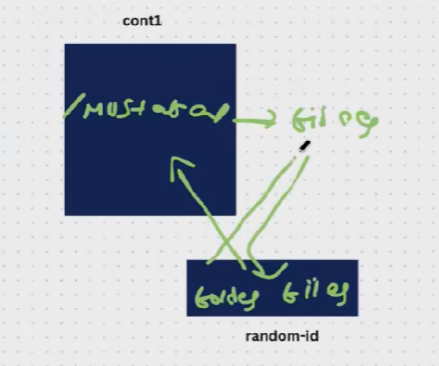 cont1
/Mustafa → files
folder files
random-id